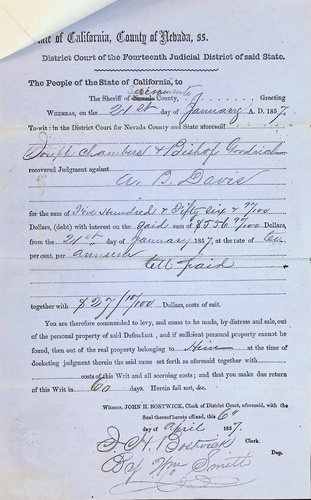 State of California, County of Nevada, ss.
District Court of the Fourteenth Judicial District of said State.
The People of the State of California, to
The Sheriff of Nevada County, Greeting
WHEREAS, on the 21st day of January A. D. 1857,
To-wit: in the District Court for Nevada County and State aforesaid
Joseph Chambers & Bishop Goodrich
recovered Judgment against
A. B. Davis
for the sum of Five Hundred & Fifty Six & 97/100
Dollars, (debt) with interest on the said sum of $556 97/100 Dollars,
from the 21st day of January 1857, at the rate of ten
per cent. per annum
till paid
together with $27 10/100 Dollars, costs of suit.
You are therefore commanded to levy, and cause to be made, by distress and sale, out
of the personal property of said Defendant , and if sufficient personal property cannot be
found, then out of the real property belonging to him at the time of
docketing judgment therein the said sums set forth as aforesaid together with
costs of this Writ and all accruing costs; and that you make due return
of this Writ in 60 days. Herein fail not, &c.
Witness, JOHN H. BOSTWICK, Clerk of District Court, aforesaid, with the
Seal thereof hereto affixed, this 6th
day of April 1857.
J. H. Bostwick Clerk.
By Wm Smith Dep.